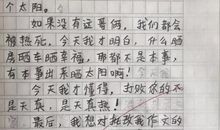 个太阳。
如果没有这哥俩，我们都会
被热死。今天我才明白，什么晒
房晒车晒幸福，那都不是本事，
有本事出来晒太阳啊！
今天我才懂得，打败你的不
是天真，是天真热！
最后，我想对批改我作文的